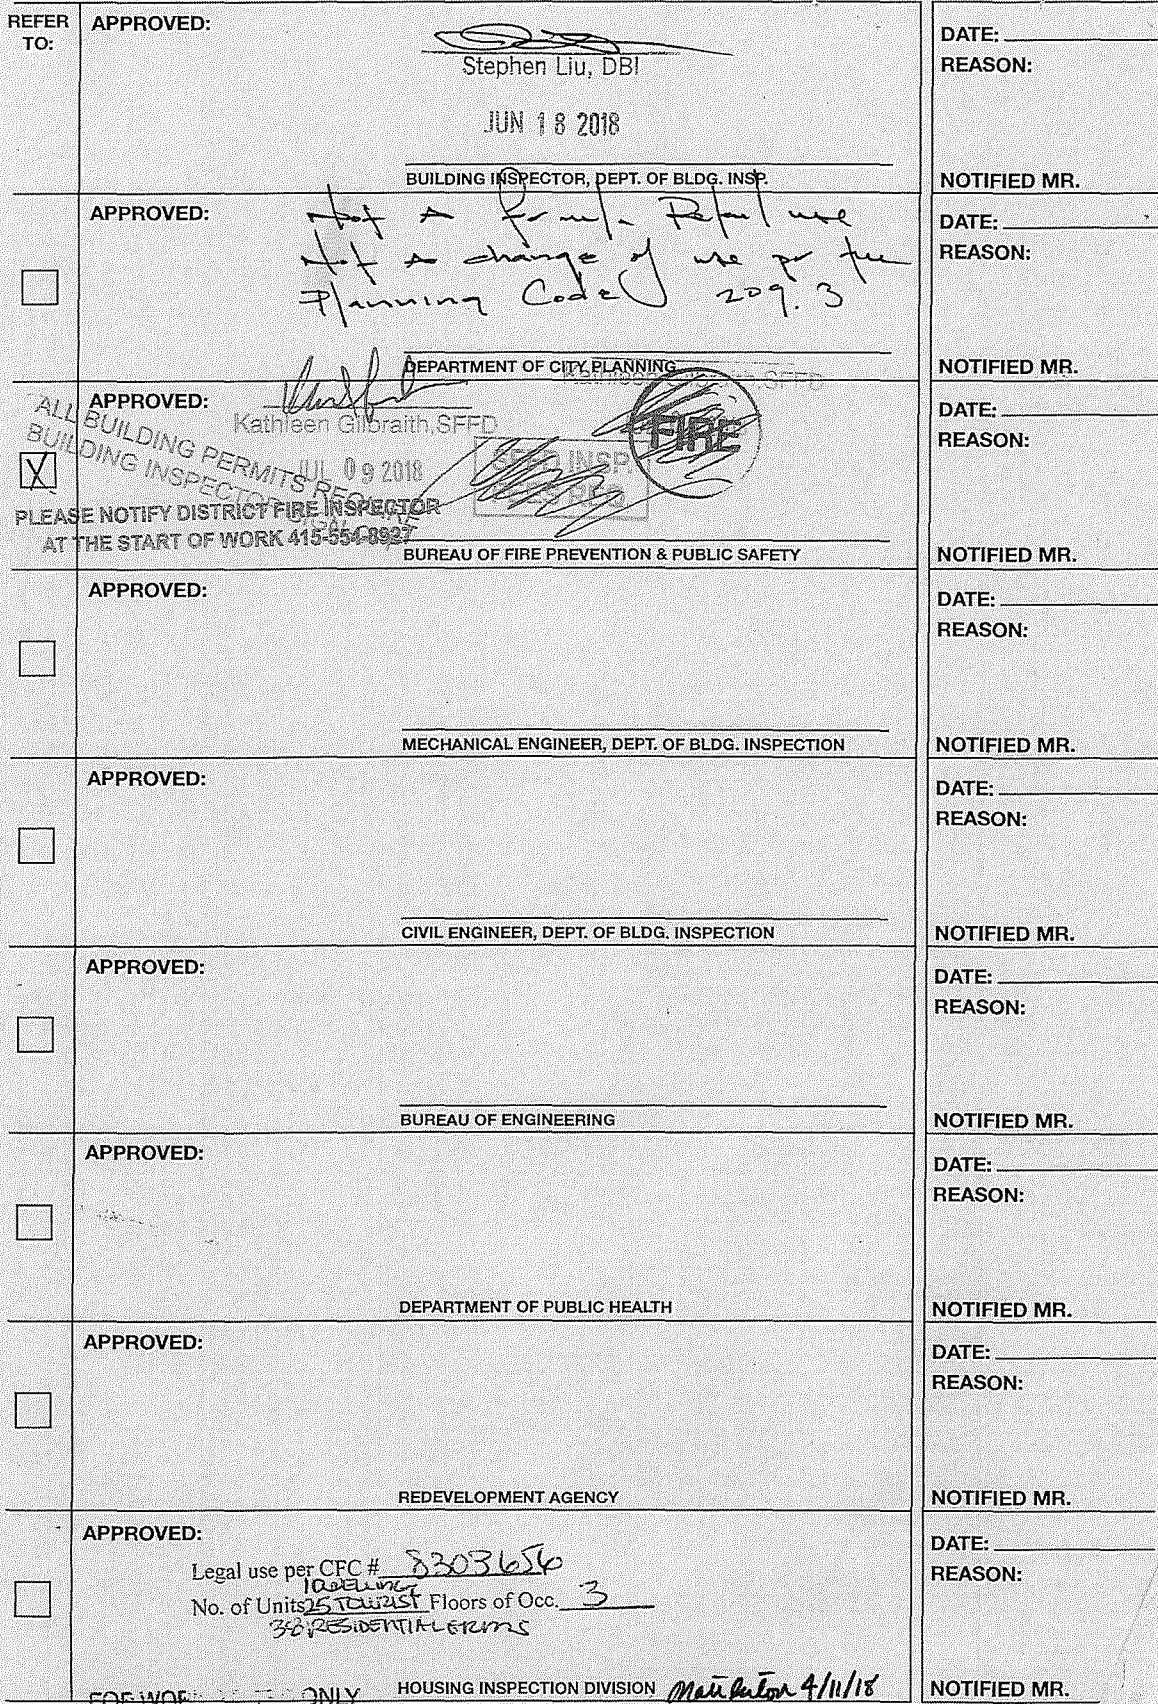 REFER TO:
APPROVED:
Stephen Liu, DBI
JUN 18 2018
BUILDING INSPECTOR, DEPT. OF BLDG. INSP.
DATE:
REASON:
NOTIFIED MR.
APPROVED:
Not a Retail use
Not a change of use per the
Planning Code 209.3
DEPARTMENT OF CITY PLANNING
DATE:
REASON:
NOTIFIED MR.
APPROVED:
Kathleen Gilbraith, SFFD
JUL 09 2018
ALL BUILDING PERMITS
BUILDING INSPECTOR
PLEASE NOTIFY DISTRICT FIRE INSPECTOR
AT THE START OF WORK 415-554-8927
X
SFFD INSP
FIRE
BUREAU OF FIRE PREVENTION & PUBLIC SAFETY
DATE:
REASON:
NOTIFIED MR.
APPROVED:
MECHANICAL ENGINEER, DEPT. OF BLDG. INSPECTION
DATE:
REASON:
NOTIFIED MR.
APPROVED:
CIVIL ENGINEER, DEPT. OF BLDG. INSPECTION
DATE:
REASON:
NOTIFIED MR.
APPROVED:
BUREAU OF ENGINEERING
DATE:
REASON:
NOTIFIED MR.
APPROVED:
DEPARTMENT OF PUBLIC HEALTH
DATE:
REASON:
NOTIFIED MR.
APPROVED:
REDEVELOPMENT AGENCY
DATE:
REASON:
NOTIFIED MR.
APPROVED:
Legal use per CFC # 8303656
1 DWELLING
No. of Units 25 TOURIST Floors of Occ. 3
38 RESIDENTIAL
HOUSING INSPECTION DIVISION 4/11/18
ONLY
DATE:
REASON:
NOTIFIED MR.